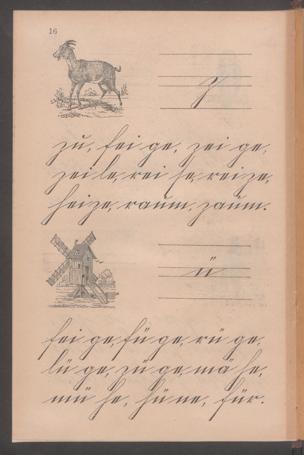 16
z
zu, fei ge, zei ge,
zei le, rei se, rei ze,
heize, raum, zaum.
ü
fei ge, fü ge, rü ge,
lü ge, zü ge, mä he,
mü he, hü ne, für.